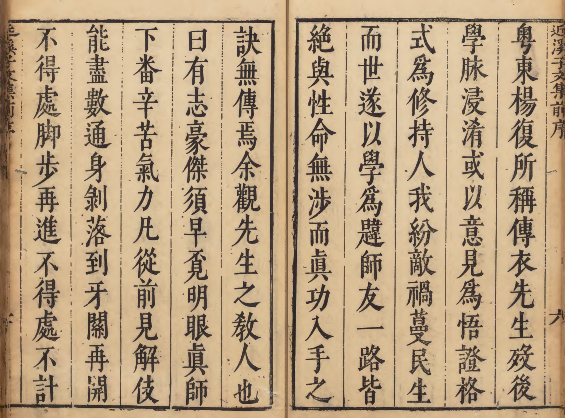 近溪子文集前序
六
粵東楊復所稱傳衣先生歿後
學脉浸淆或以意見爲悟證格
式爲修持人我紛敵禍蔓民生
而世遂以學爲韙師友一路皆
絕與性命無涉而眞功入手之
訣無傳焉余觀先生之敎人也
曰有志豪傑須早覔明眼眞師
下畨辛苦氣力凡從前見解伎
能盡數通身剝落到牙關再開
不得處脚步再進不得處不計